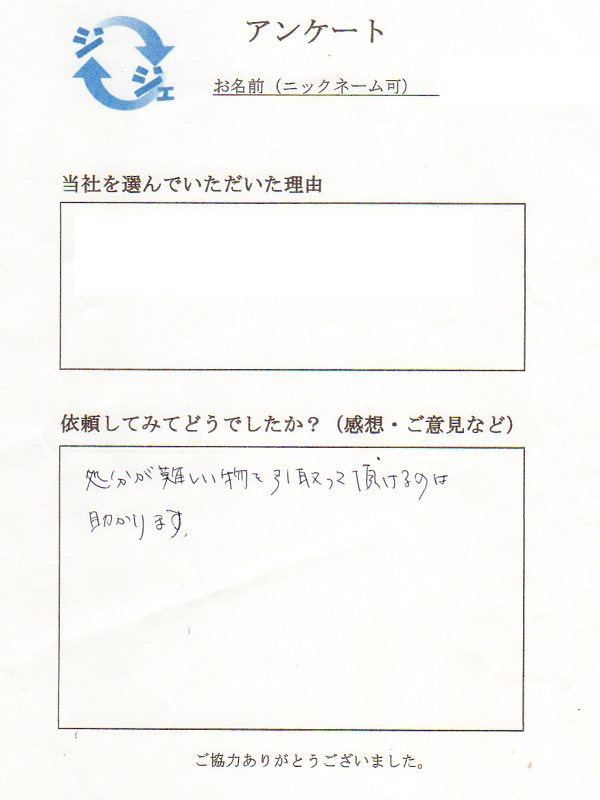 ジジェ
アンケート
お名前（ニックネーム可）
当社を選んでいただいた理由
依頼してみてどうでしたか？（感想・ご意見など）
処分が難しい物を引取って頂けるのは
助かります。
ご協力ありがとうございました。